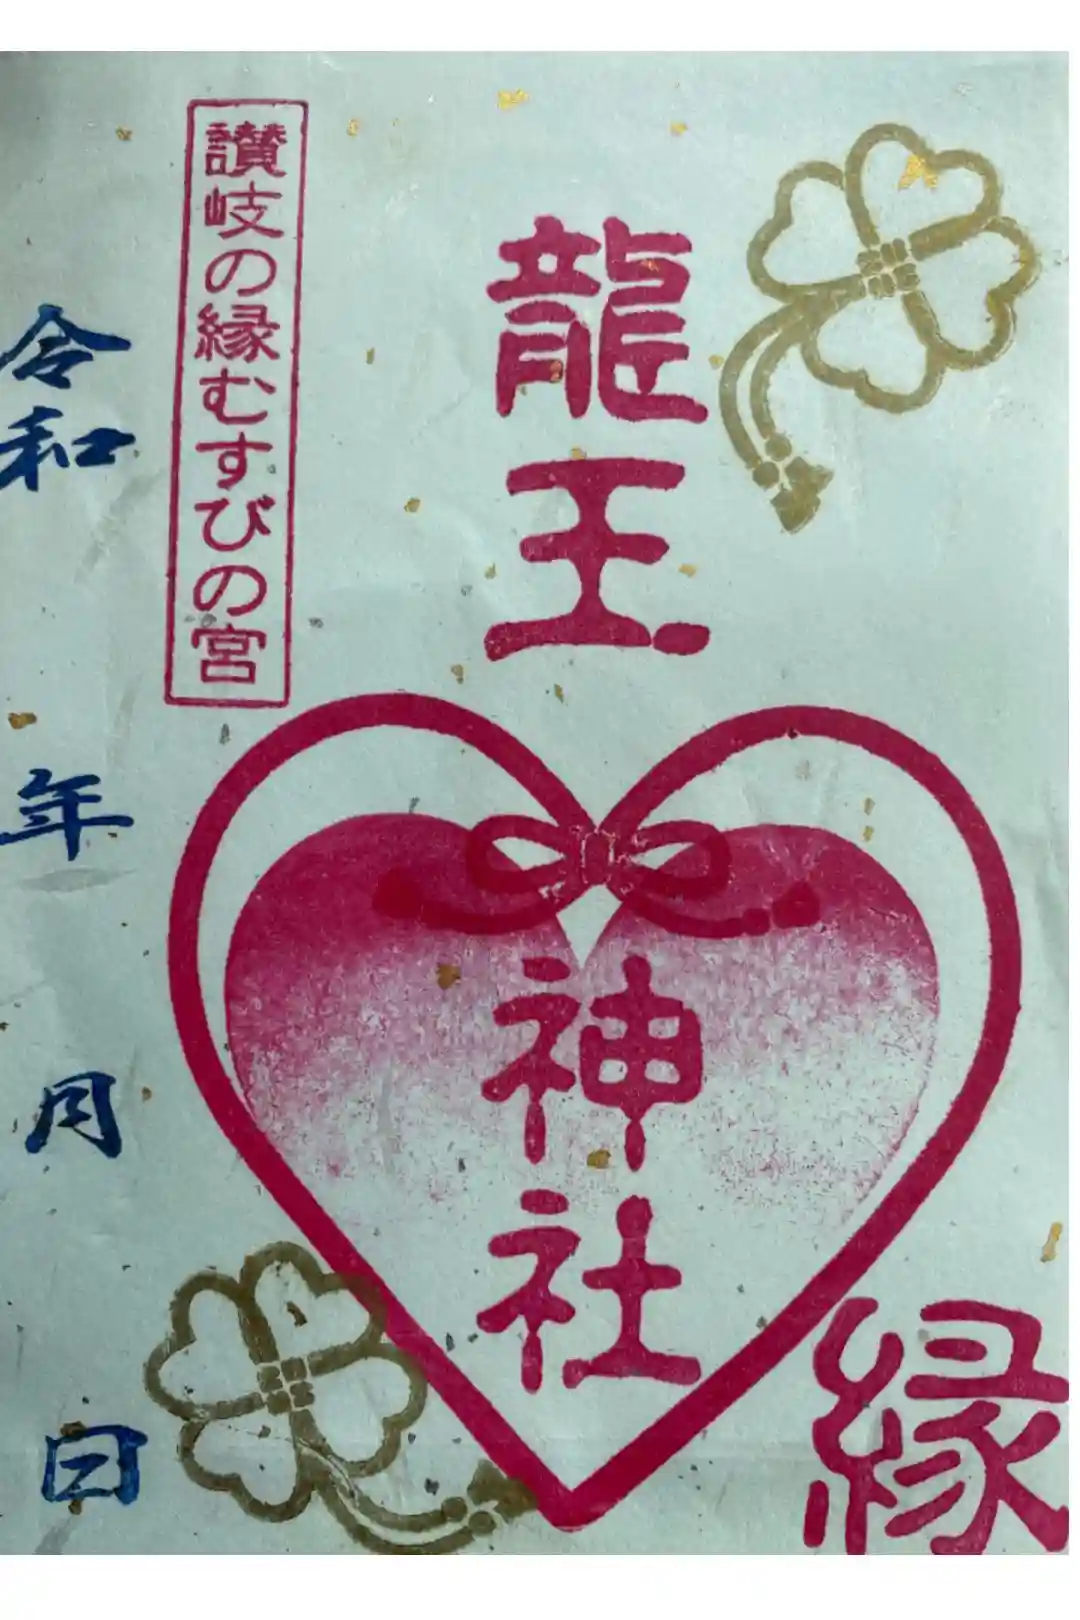 縁
龍王神社
讃岐の縁むすびの宮
令和 年 月 日